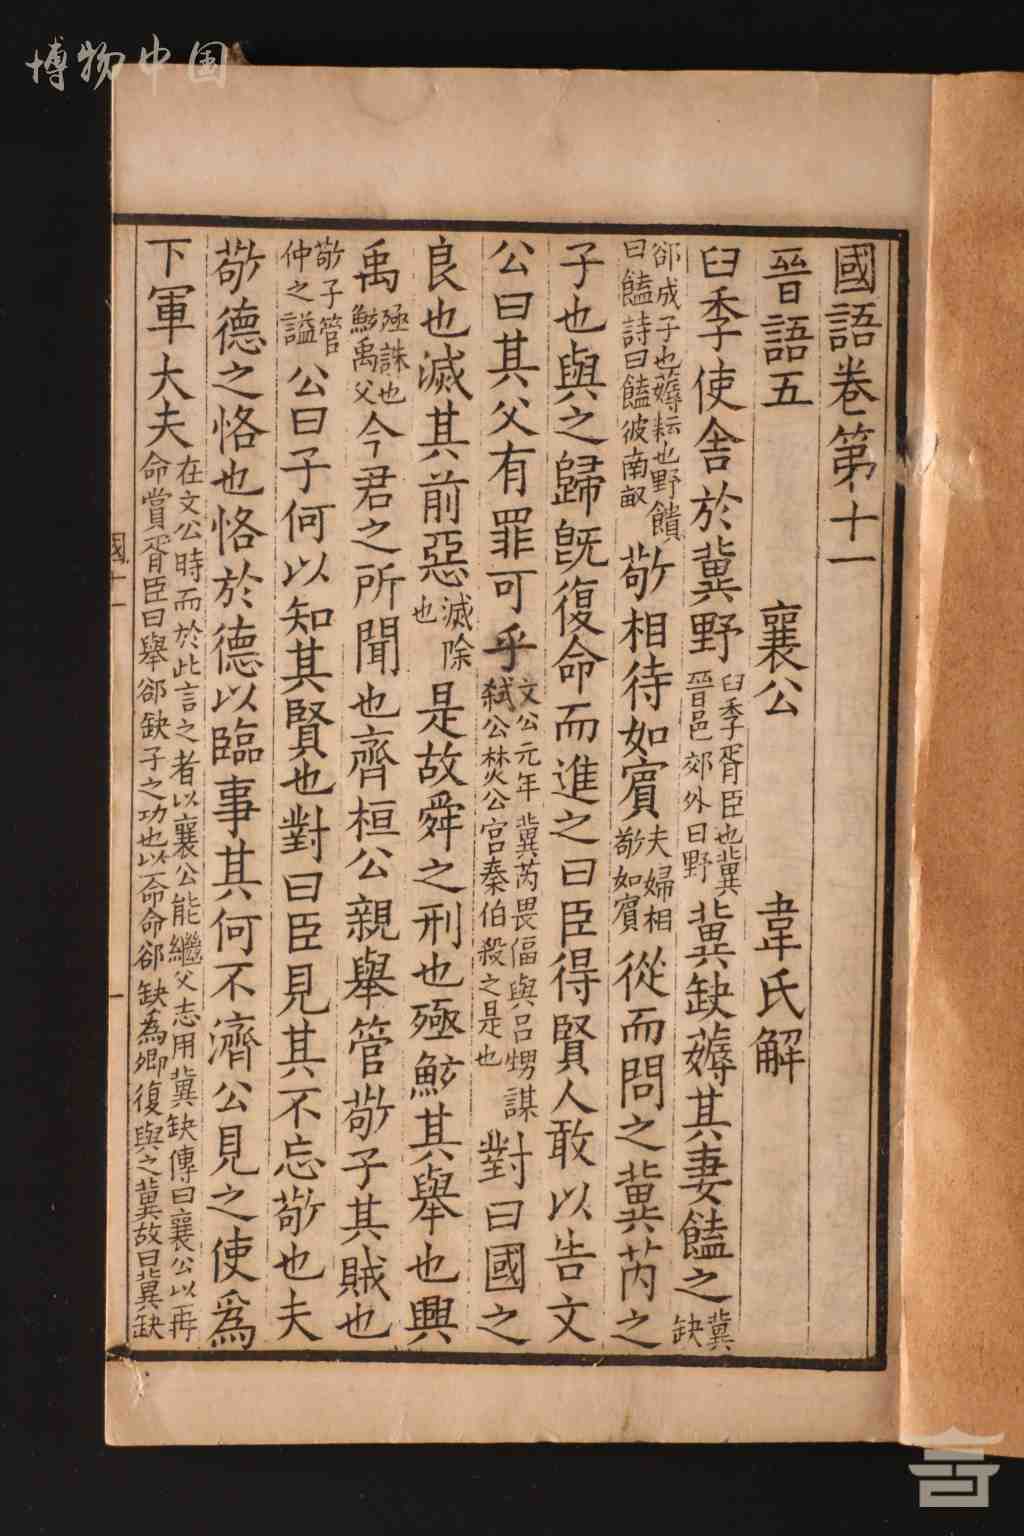 博物中国
國語卷第十一
晉語五 襄公 韋氏解
臼季使舍於冀野臼季胥臣也冀晉邑郊外曰野冀缺薅其妻饁之冀缺
郤成子也薅耘也野饋曰饁詩曰饁彼南畝敬相待如賓夫婦相敬如賓從而問之冀芮之
子也與之歸既復命而進之曰臣得賢人敢以告文
公曰其父有罪可乎文公元年冀芮畏偪與呂甥謀弒公焚公宮秦伯殺之是也對曰國之
良也滅其前惡滅除也是故舜之刑也殛鮌其舉也興
禹殛誅也鮌禹父今君之所聞也齊桓公親舉管敬子其賊也
敬子管仲之謚公曰子何以知其賢也對曰臣見其不忘敬也夫
敬德之恪也恪於德以臨事其何不濟公見之使爲
下軍大夫在文公時而於此言之者以襄公能繼父志用冀缺傳曰襄公以再命命賞胥臣曰舉郤缺子之功也以一命命郤缺為卿復與之冀故曰冀缺
國十一
一